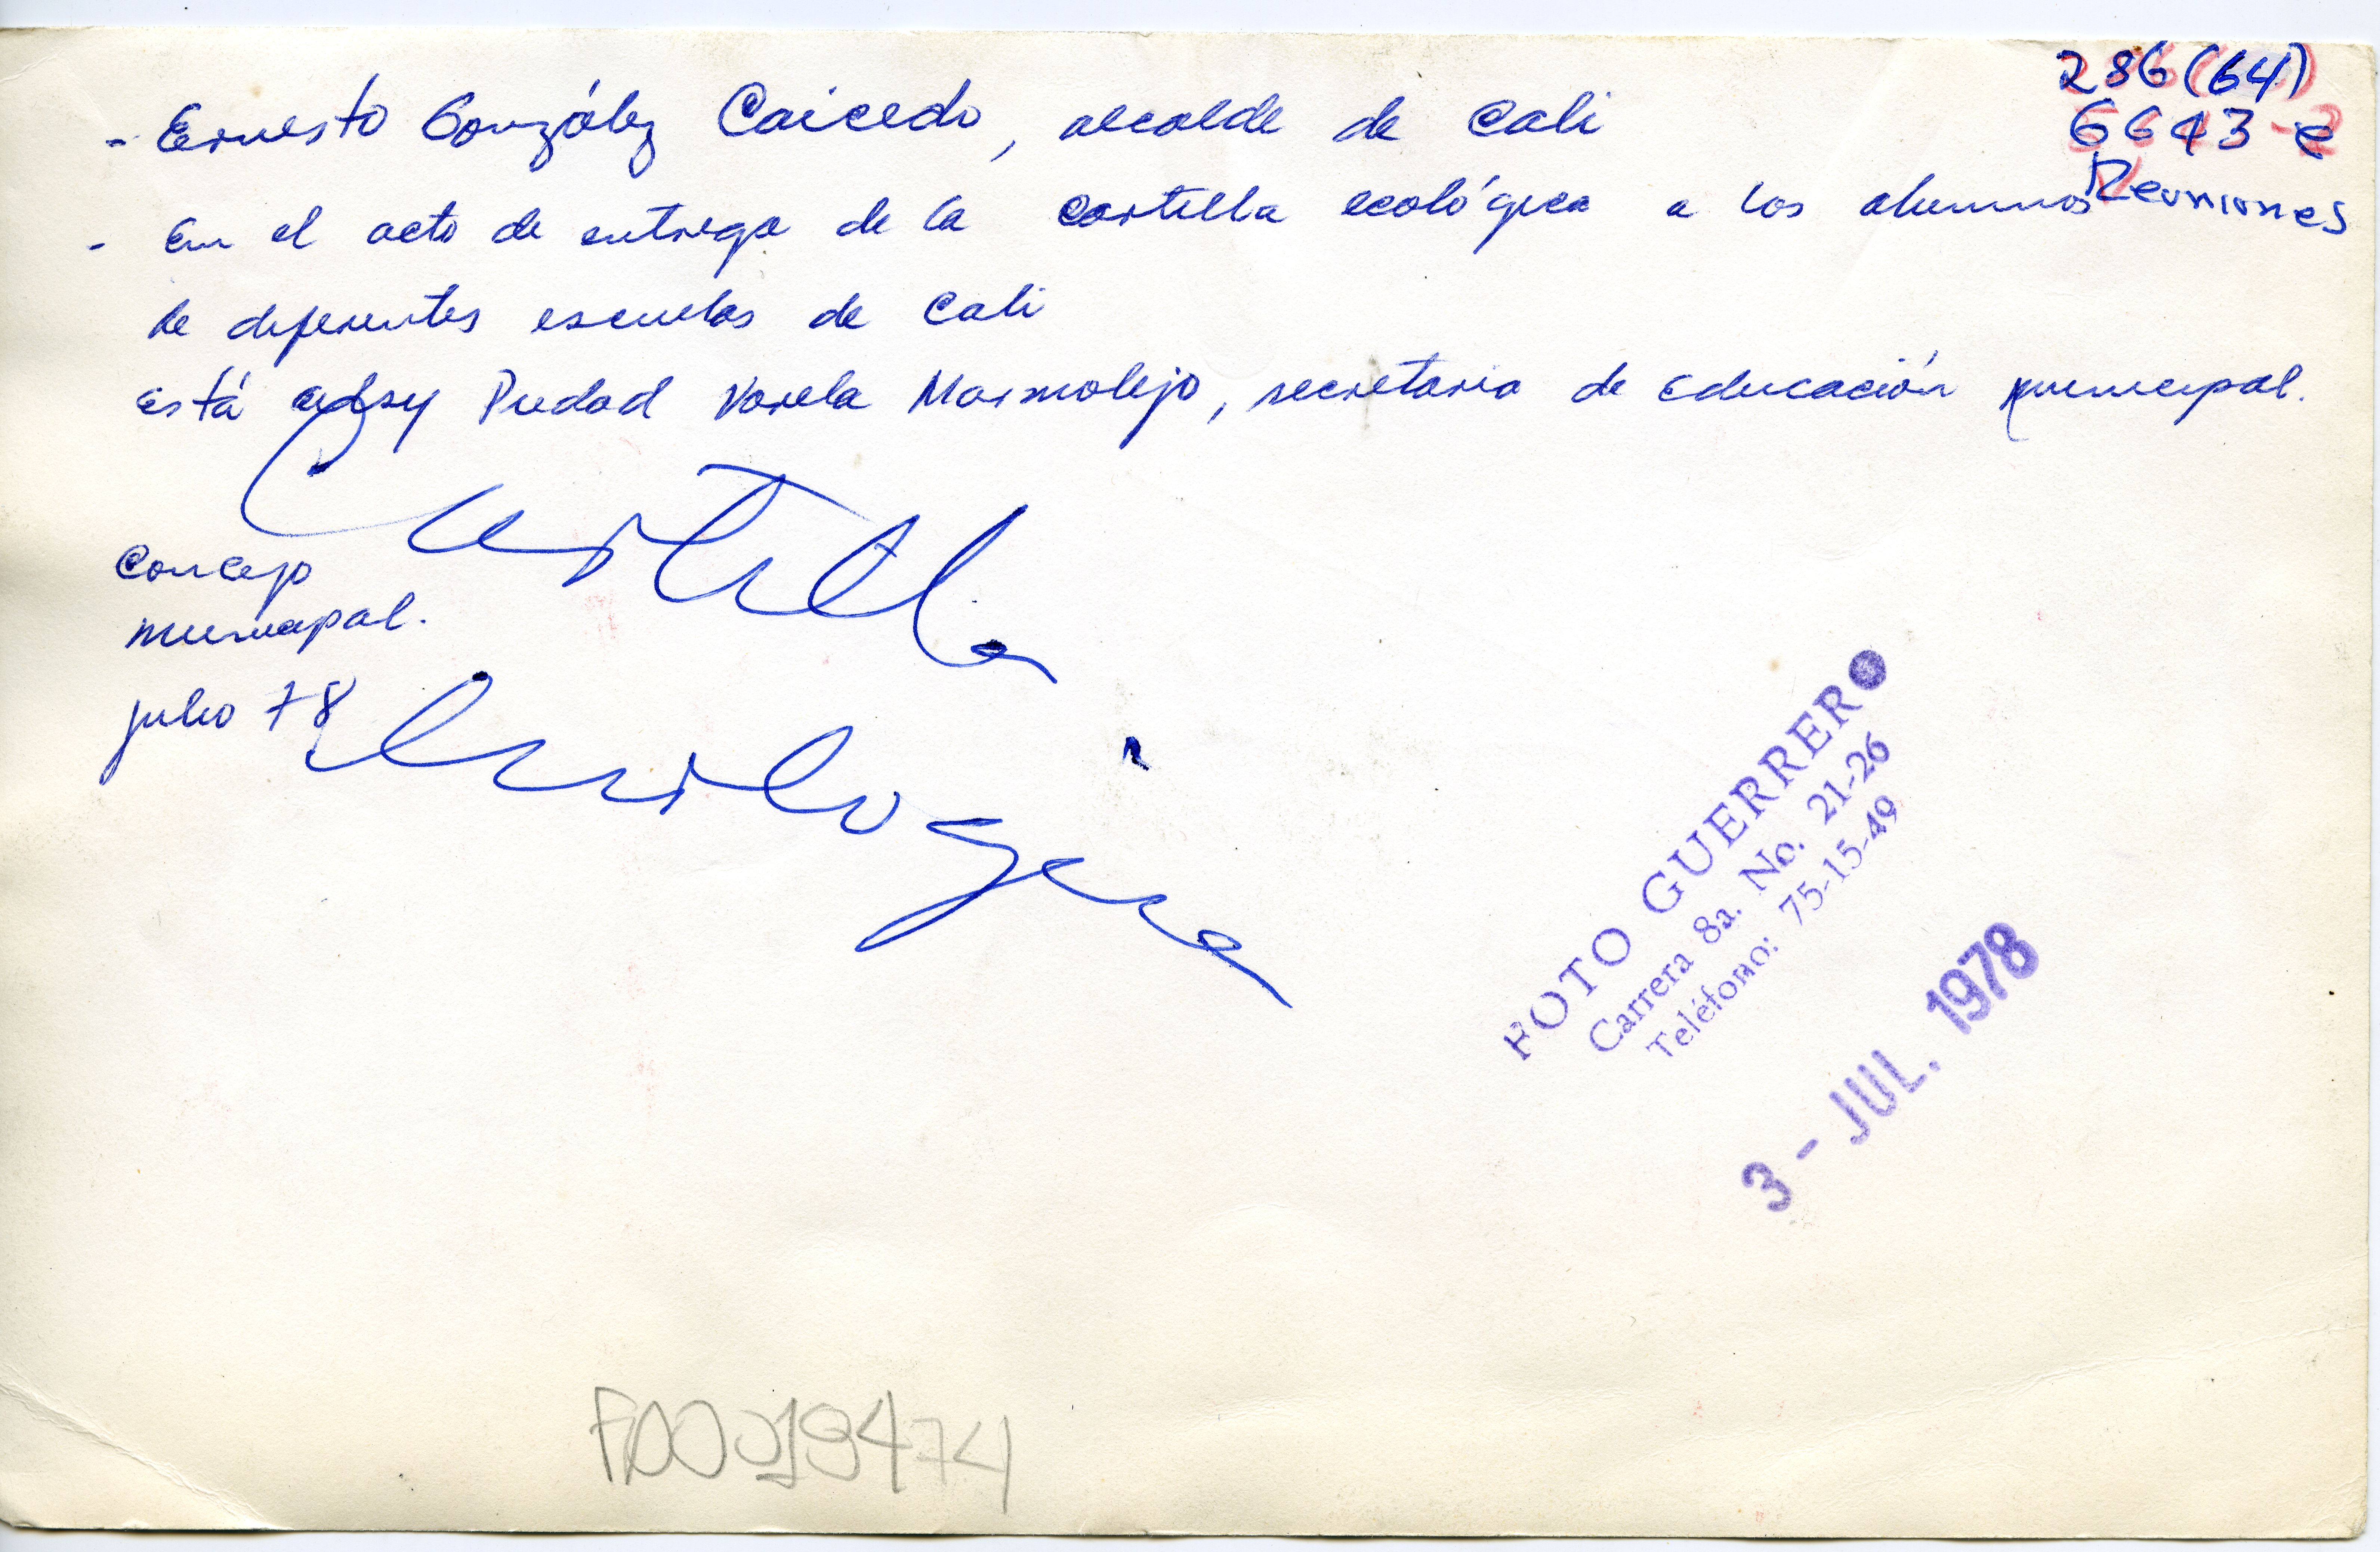 286 (64)
6643-e
Reuniones
- Ernesto González Caicedo, alcalde de Cali
- En el acto de entrega de la cartilla ecológica a los alumnos
de diferentes escuelas de Cali
está Piedad Varela Marmolejo, secretaria de Educación municipal.
Cartilla
Concejo
municipal.
julio 78
Ecológica
FOTO GUERRERO
Carrera 8a. No. 21-26
Teléfono: 75-15-49
3 - JUL. 1978
F00019474